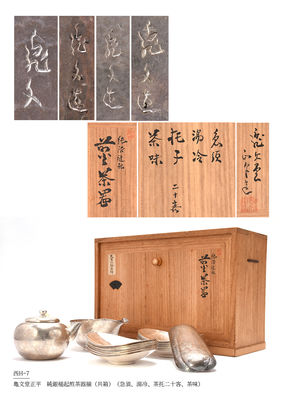 龜文造
龜文造
龜文造
龜文
龜文堂
急須
湯冷
托子 二十客
茶味
純銀槌起
煎茶器
純銀槌起
煎茶器
西H-7
亀文堂正平　純銀槌起煎茶器揃（共箱）（急須、湯冷、茶托二十客、茶味）